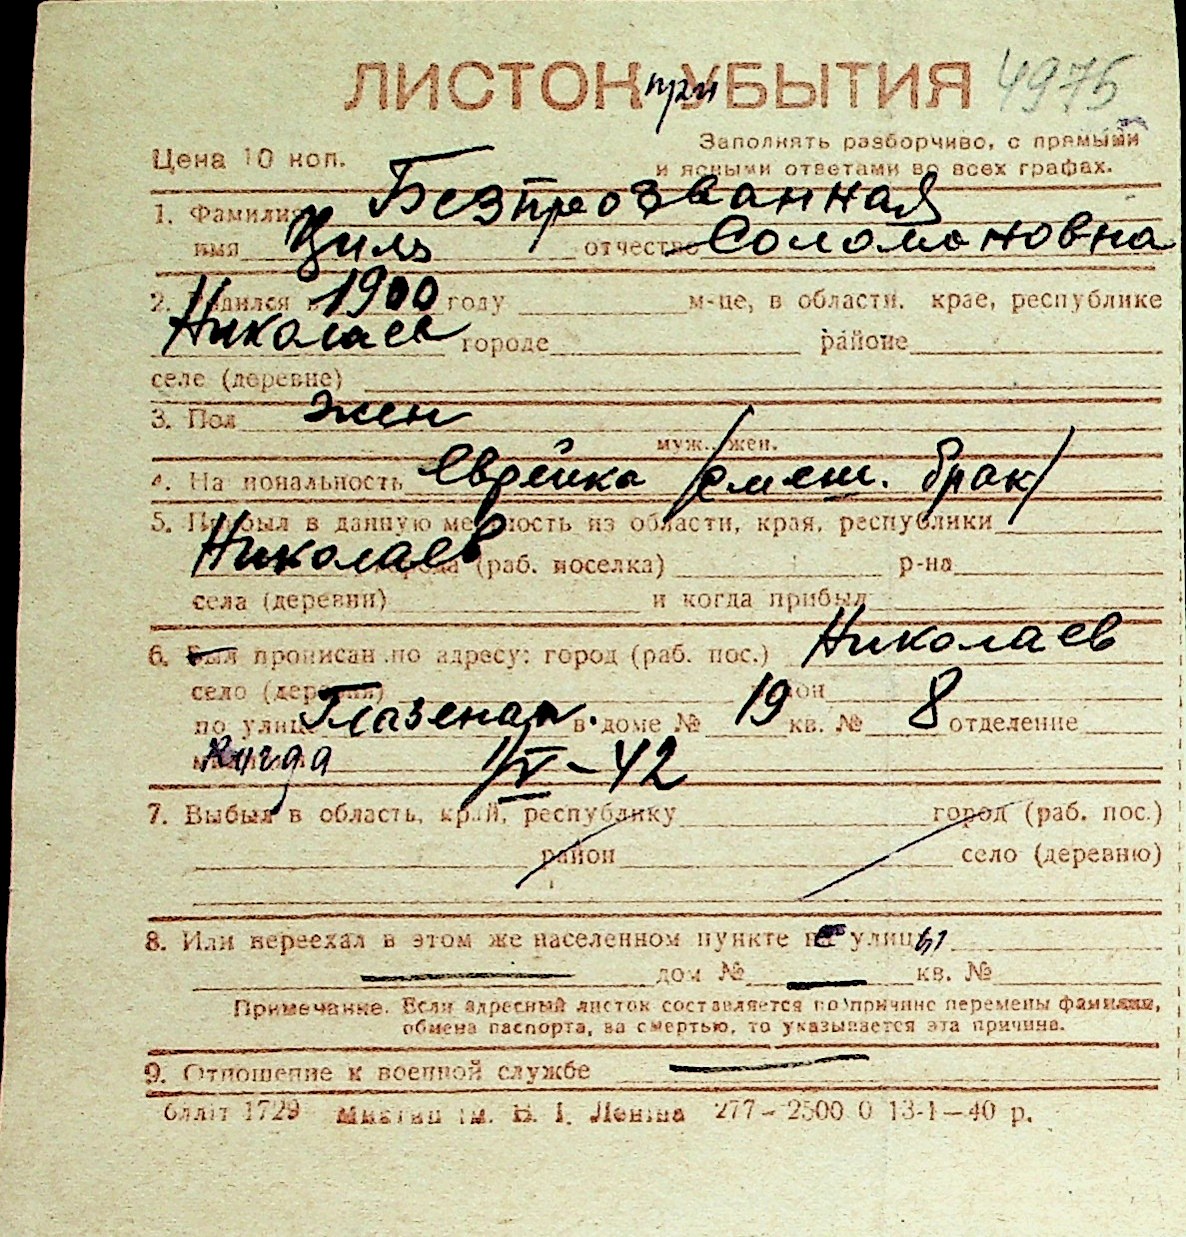 ЛИСТОК при УБЫТИЯ 4975
Заполнять разборчиво, с прямыми
Цена 10 коп. и ясными ответами во всех графах.
1. Фамилия Безпрозванная
имя Циля отчество Соломоновна
2. Родился в 1900 году м-це, в области, крае, республике
Николаев городе районе
селе (деревне)
3. Пол жен
муж., жен.
4. Национальность еврейка /смеш. брак/
5. Прибыл в данную местность из области, края, республики
Николаев города (раб. поселка) р-на
села (деревни) и когда прибыл
6. Был прописан по адресу: город (раб. пос.) Николаев
село (деревня) район
по улице Глазенап. в доме № 19 кв. № 8 отделение
когда 1/IV-42
7. Выбыл в область, край, республику город (раб. пос.)
район село (деревню)
8. Или переехал в этом же населенном пункте улицы
дом № кв. №
Примечание. Если адресный листок составляется по причине перемены фамилии,
обмена паспорта, за смертью, то указывается эта причина.
9. Отношение к военной службе
Облліт 1729 ім. В. І. Леніна 277—2500 0 13-1—40 р.